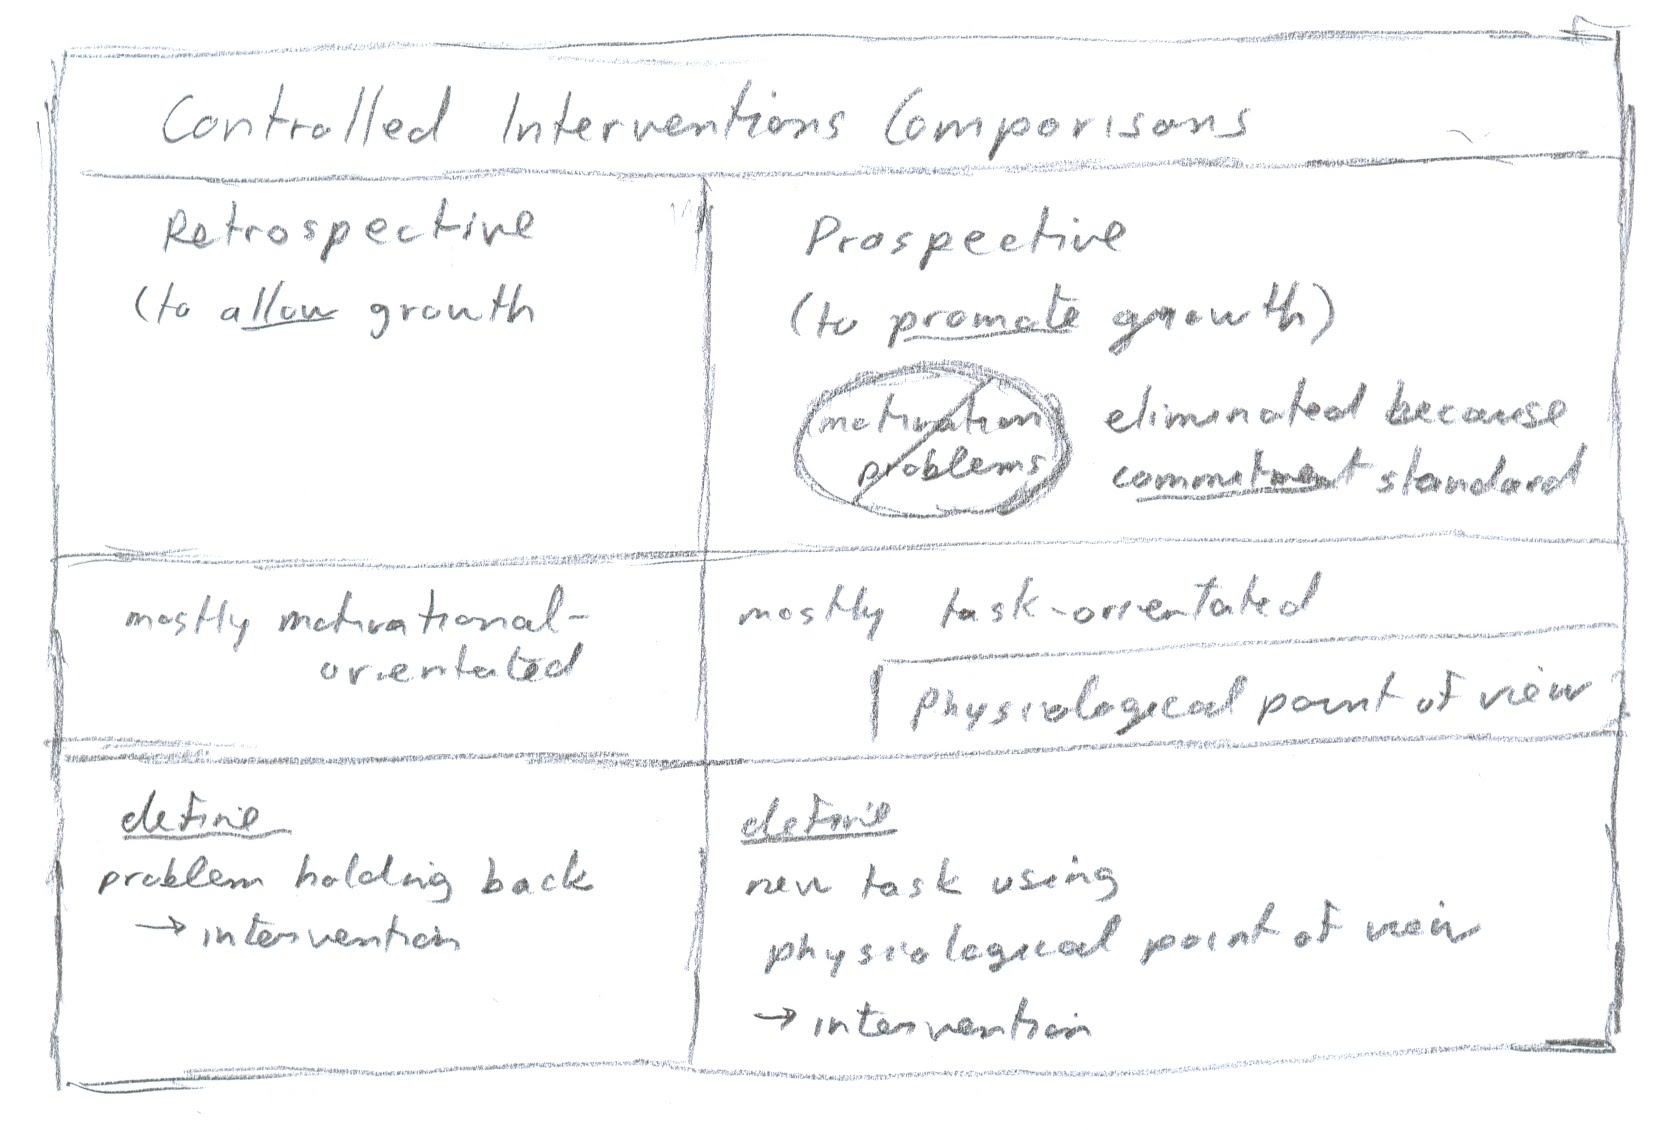 Controlled Interventions Comparisons
Retrospective
(to allow growth
Prospective
(to promote growth)
motivation
problems
eliminated because
commitment standard
mostly motivational-
orientated
mostly task-orientated
physiological point of view
define
problem holding back
→ intervention
define
new task using
physiological point of view
→ intervention